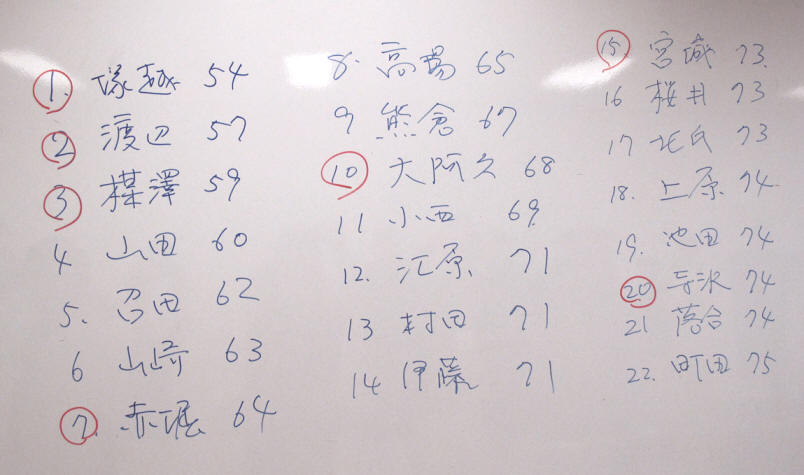 1. 塚越 54
2 渡辺 57
3 楳澤 59
4 山田 60
5. 沼田 62
6 山崎 63
7. 赤堀 64
8. 高場 65
9 熊倉 67
10 大阿久 68
11 小西 69
12. 江原 71
13 村田 71
14 伊藤 71
15. 宮城 73
16 桜井 73
17 73
18. 上原 74
19. 池田 74
20 74
21 落合 74
22. 町田 75